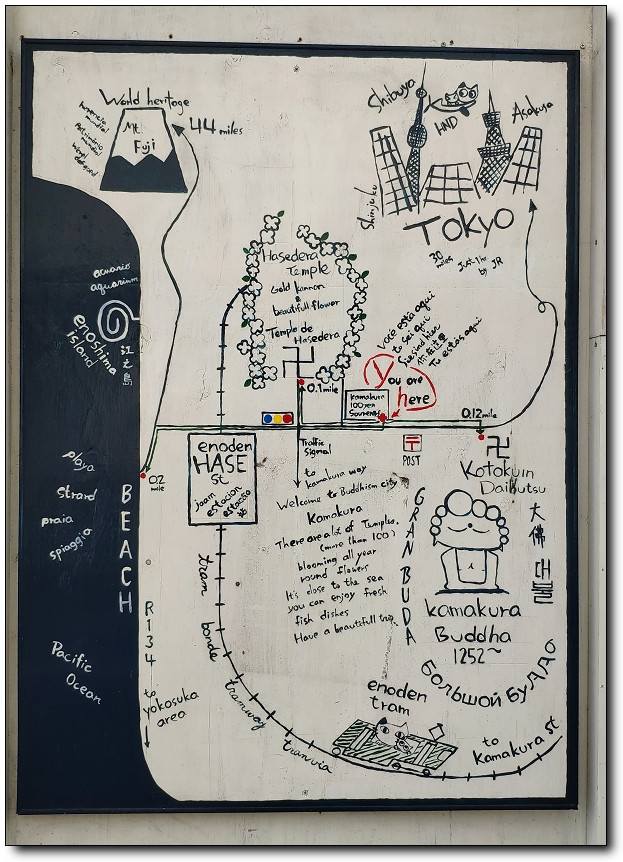 World heritage
Mt.
Fuji
44 miles
Shibuya
HND
Asakusa
Shinjuku
TOKYO
30 miles
Just 1hr
by JR
acuario
aquarium
enoshima
island
江之島
Hasedera
Temple
Gold kannon
&
beautifull flower
Temple de
Hasedera
卍
0.1 mile
você está aqui
tu sei qui
Sie sind hier
Tu estas aqui
You are
here
kamakura
100 yen
Souvenir
0.12 mile
〒
POST
卍
Kotokuin
Daibutsu
enoden
HASE
st
estacion
estacao
站
Traffic
Signal
to
kamakura way
02
mile
playa
strand
praia
spiaggia
BEACH
Welcome to Buddhism city
Kamakura
There are a lot of Temples.
(more than 100)
blooming all year
round flowers
It's close to the sea
you can enjoy fresh
fish dishes
Have a beautifull trip.
GRAN BUDA
大佛
대불
kamakura
Buddha
1252~
БОЛЬШОЙ БУДДО
R134
to
yokosuka
area
Pacific
Ocean
tram
bonde
tramway
tranvia
enoden
tram
to
kamakura st